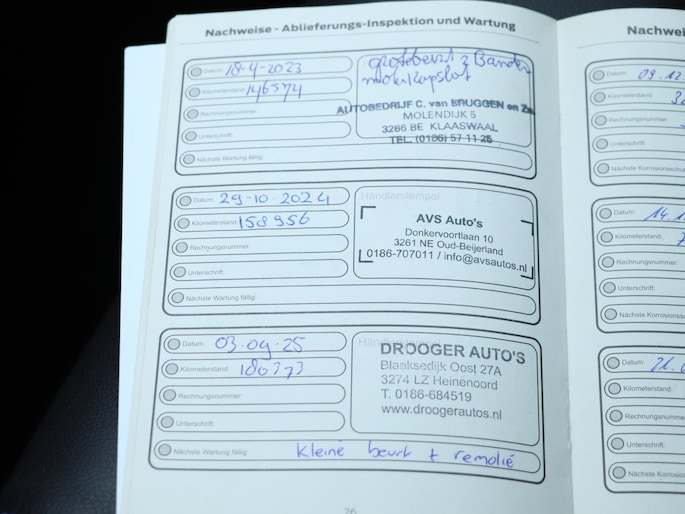 Nachweise - Ablieferungs-Inspektion und Wartung
Datum: 18-4-2023
grote beurt 2 Banden
Kilometerstand: 146574
Rechnungsnummer:
AUTOBEDRIJF C. van BRUGGEN en Zn.
MOLENDIJK 5
Unterschrift:
3286 BE KLAASWAAL
TEL. (0186) 57 11 25
Nächste Wartung fällig:
Datum: 29-10-2024
Händlerstempel
Kilometerstand: 158956
AVS Auto's
Donkervoortlaan 10
Rechnungsnummer:
3261 NE Oud-Beijerland
0186-707011 / info@avsautos.nl
Unterschrift:
Nächste Wartung fällig:
Datum: 03-09-25
DROOGER AUTO'S
Kilometerstand: 180373
Blaaksedijk Oost 27A
3274 LZ Heinenoord
Rechnungsnummer:
T. 0186-684519
www.droogerautos.nl
Unterschrift:
Nächste Wartung fällig: Kleine beurt + remolie
26
Datum: 09.12
Kilometerstand:
Rechnungsnummer
Unterschrift:
Nächste Korrosionsschu
Datum: 14.1
Kilometerstand:
Rechnungsnummer:
Unterschrift:
Nächste Korrosionss
Datum: 21.
Kilometerstand:
Rechnungsnumme
Unterschrift:
Nächste Korrosion